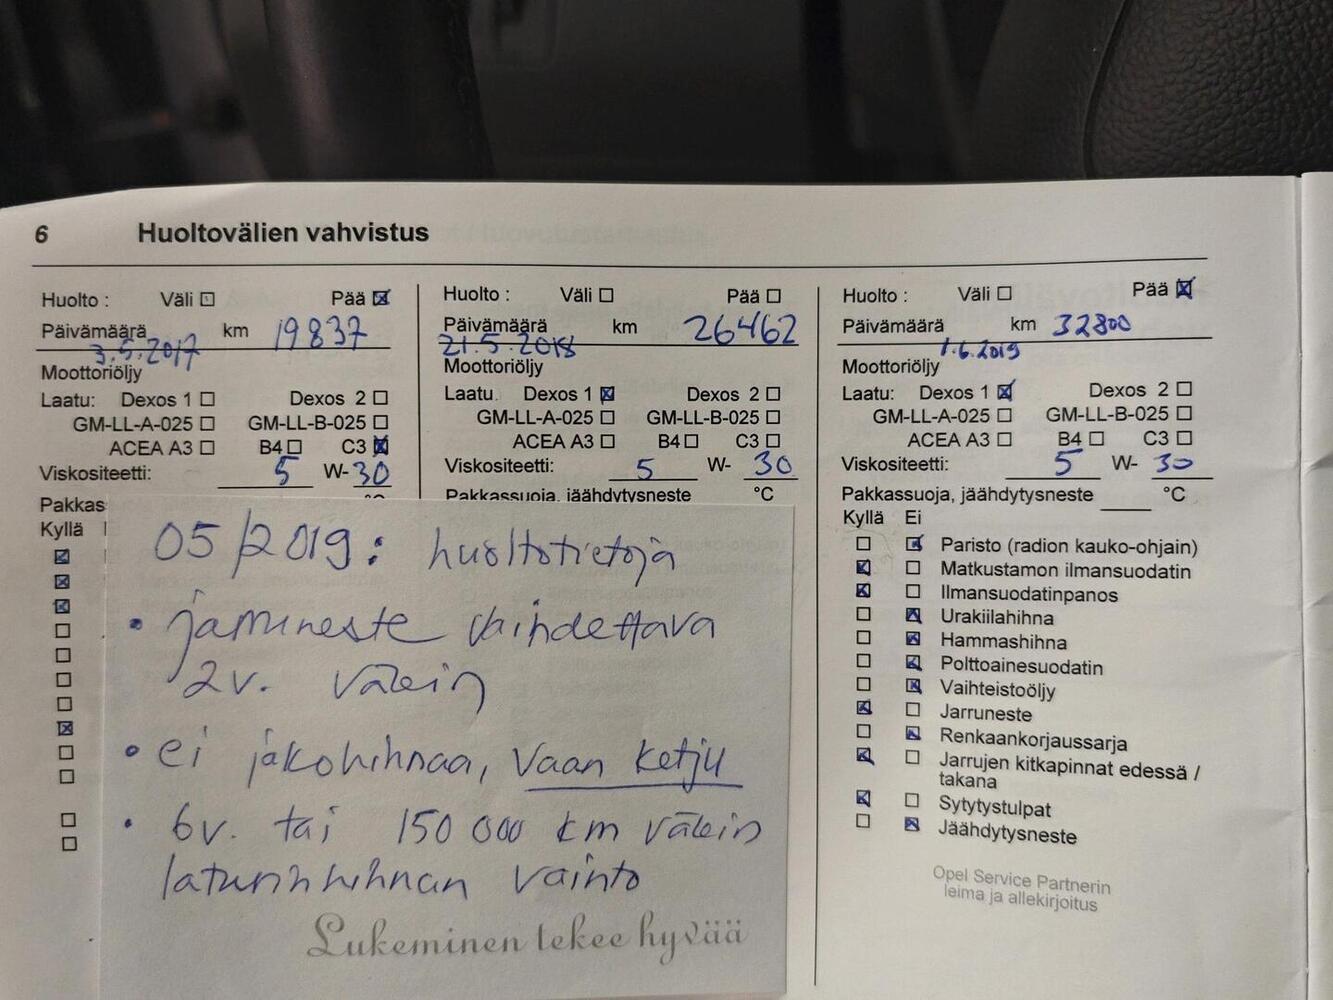 6 Huoltovälien vahvistus
Huolto : Väli ☐ Pää ☒
Päivämäärä km 19837
3.5.2017
Moottoriöljy
Laatu: Dexos 1 ☐ Dexos 2 ☐
GM-LL-A-025 ☐ GM-LL-B-025 ☐
ACEA A3 ☐ B4 ☐ C3 ☒
Viskositeetti: 5 W-30
Pakkas
Kyllä
Huolto : Väli ☐ Pää ☐
Päivämäärä km 26462
21.5.2018
Moottoriöljy
Laatu. Dexos 1 ☒ Dexos 2 ☐
GM-LL-A-025 ☐ GM-LL-B-025 ☐
ACEA A3 ☐ B4 ☐ C3 ☐
Viskositeetti: 5 W- 30
Pakkassuoja, jäähdytysneste °C
05/2019: huoltotietoja
• jarruneste vaihdettava
2v. välein
• ei jakohihnaa, vaan ketju
• 6v. tai 150 000 km välein
laturinhihnan vaihto
Lukeminen tekee hyvää
Huolto : Väli ☐ Pää ☒
Päivämäärä km 32800
1.6.2019
Moottoriöljy
Laatu: Dexos 1 ☒ Dexos 2 ☐
GM-LL-A-025 ☐ GM-LL-B-025 ☐
ACEA A3 ☐ B4 ☐ C3 ☐
Viskositeetti: 5 W- 30
Pakkassuoja, jäähdytysneste °C
Kyllä Ei
☐ ☒ Paristo (radion kauko-ohjain)
☒ ☐ Matkustamon ilmansuodatin
☒ ☐ Ilmansuodatinpanos
☐ ☒ Urakiilahihna
☐ ☒ Hammashihna
☐ ☒ Polttoainesuodatin
☐ ☒ Vaihteistoöljy
☒ ☐ Jarruneste
☐ ☒ Renkaankorjaussarja
☒ ☐ Jarrujen kitkapinnat edessä /
takana
☒ ☐ Sytytystulpat
☐ ☒ Jäähdytysneste
Opel Service Partnerin
leima ja allekirjoitus